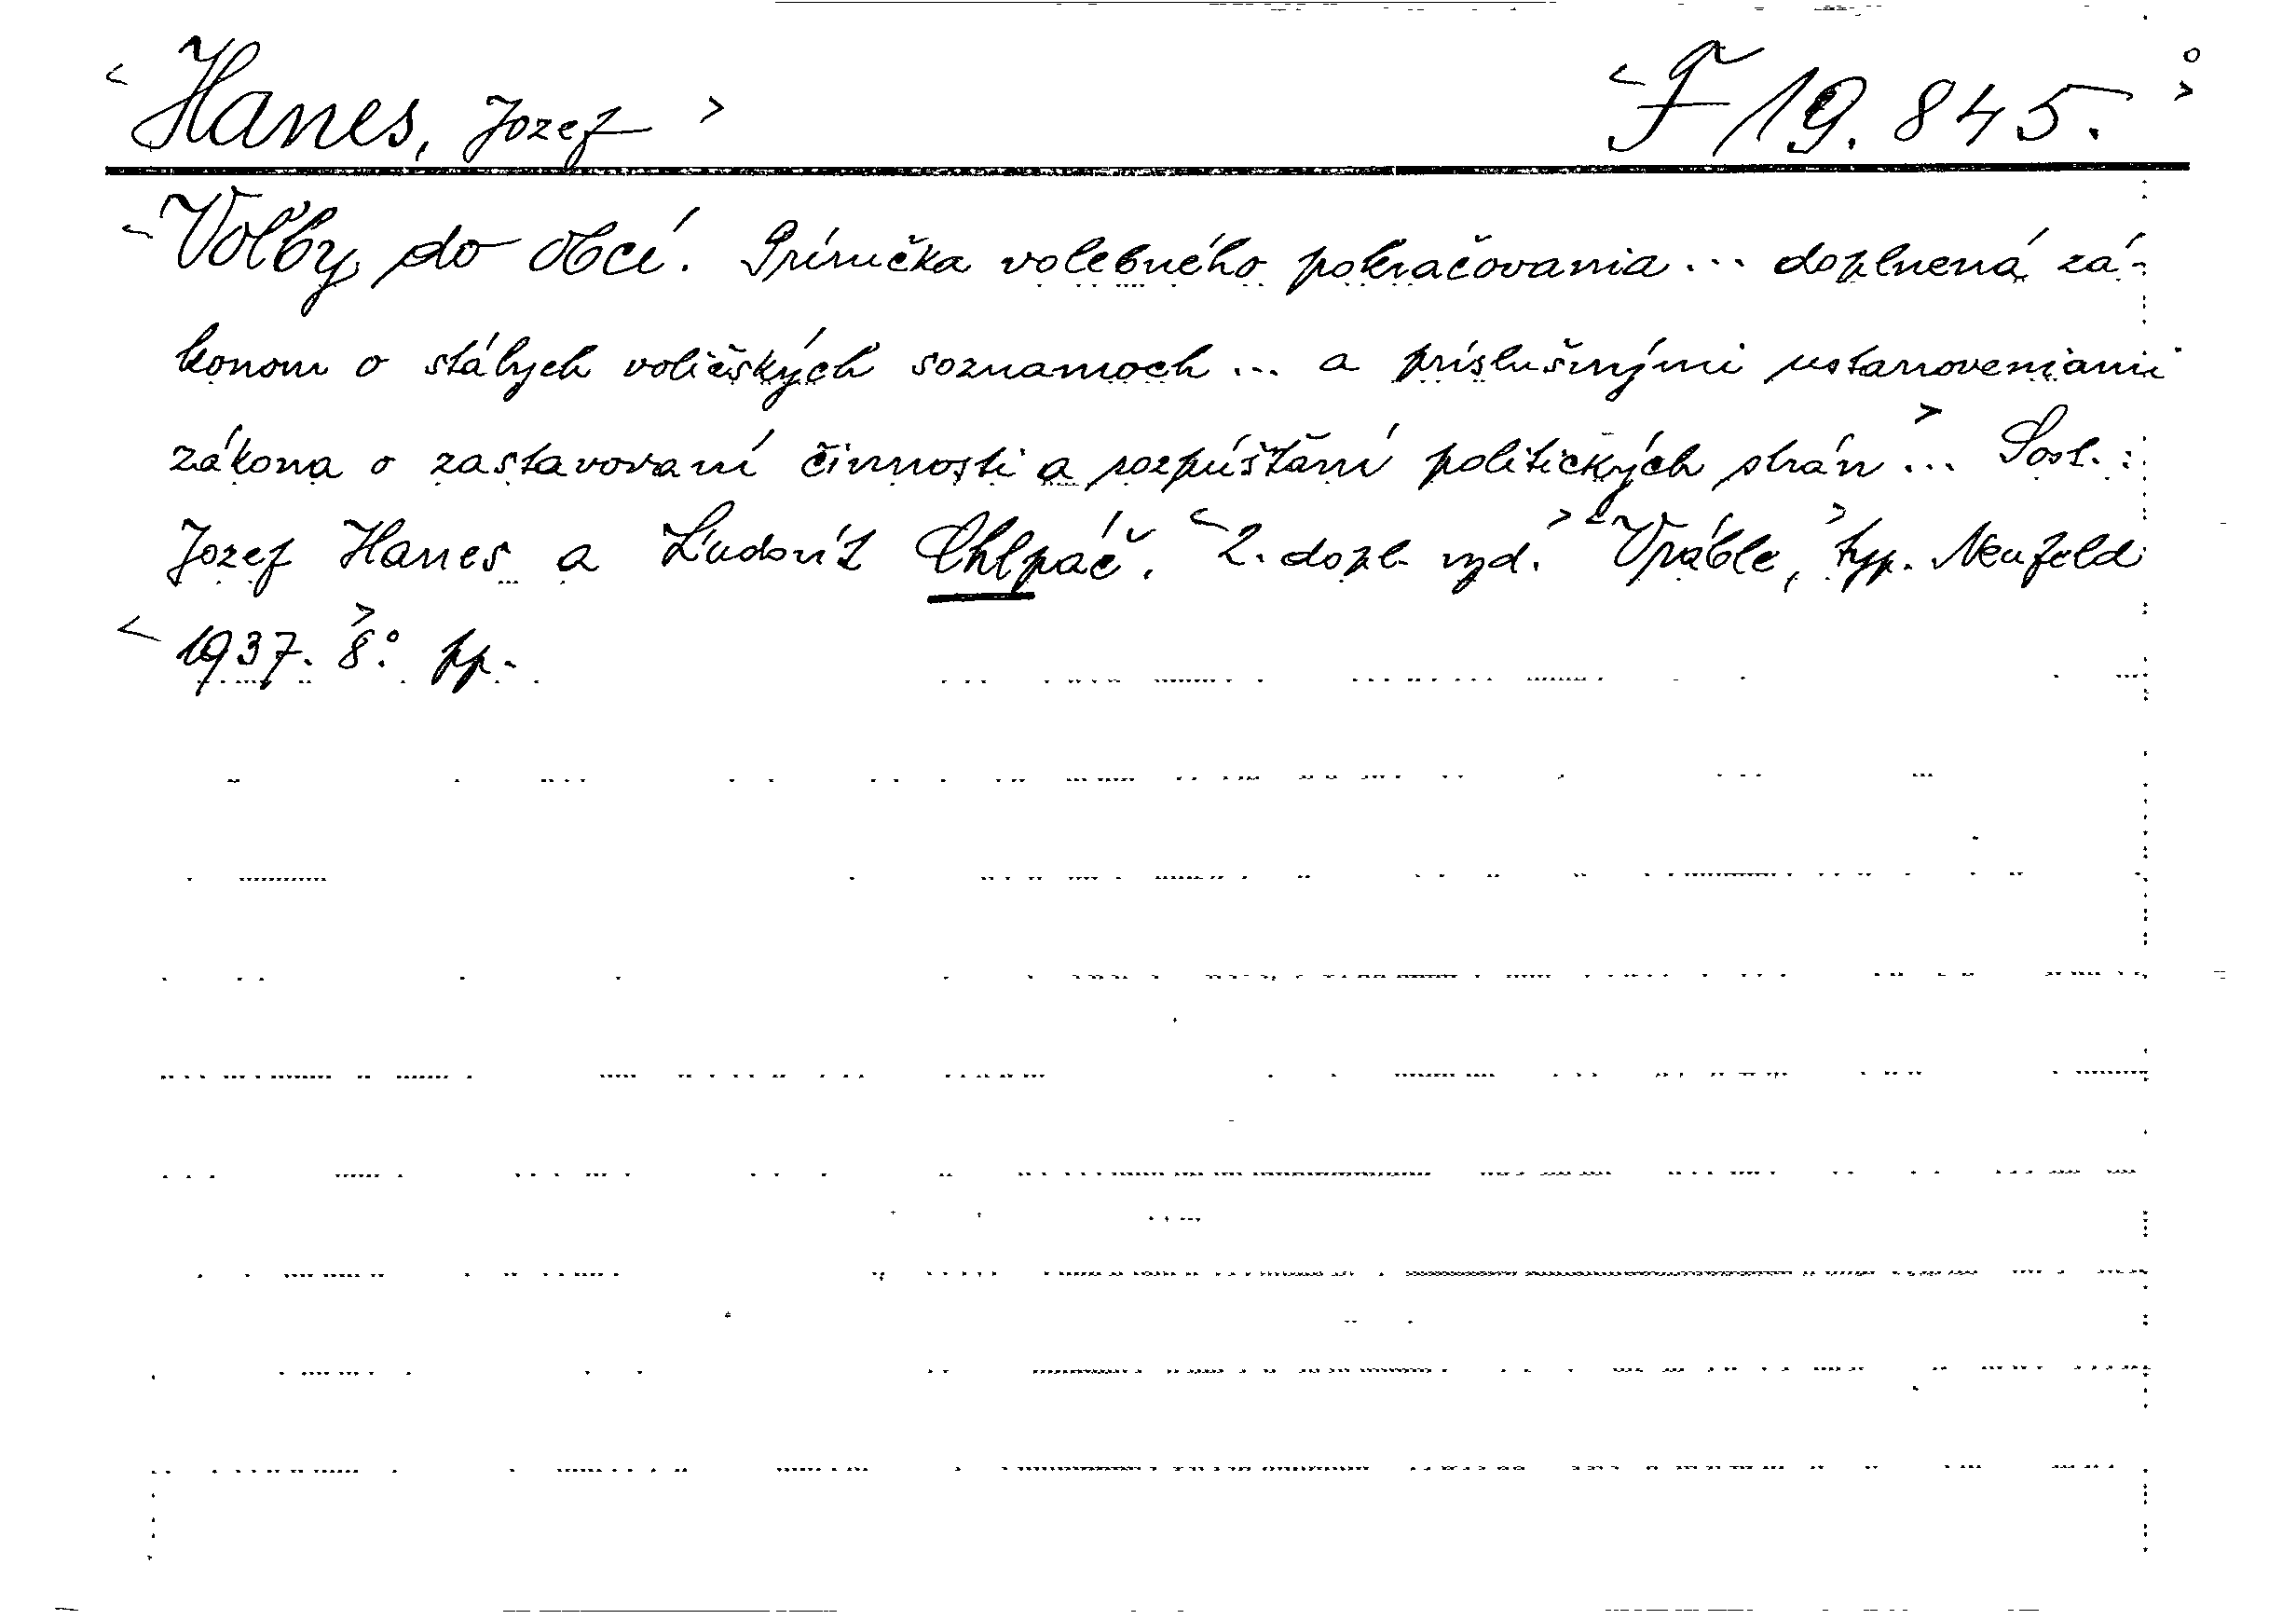 < Hanes, Jozef > < F 19.845. >
< Voľby do obcí. Príručka volebného pokračovania ... doplnená zá-
konom o stálych voličských soznamoch ... a príslušnými ustanoveniami
zákona o zastavovaní činnosti a rozpúštání politických strán > ... Sost. :
Jozef Hanes a Ľudovít Chlpáč. < 2. dopl. vyd. > < Vráble, > typ. Neufeld
< 1937. > 8°. pp.